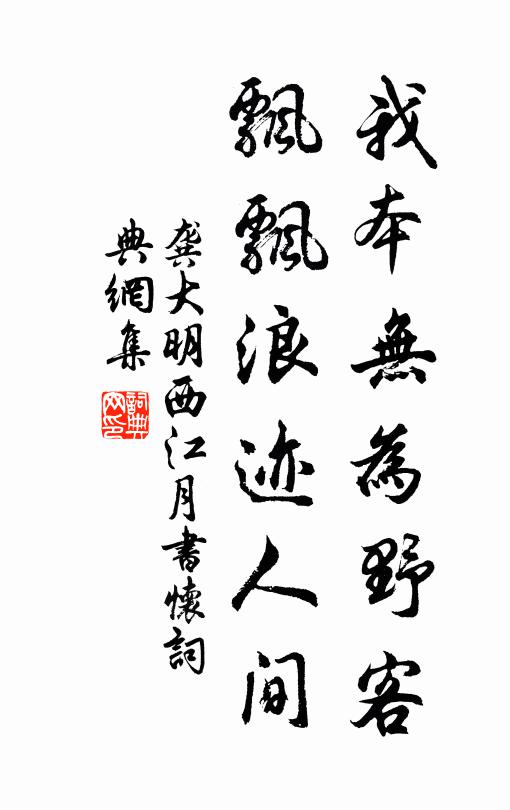 我本無為野客
飄飄浪迹人间
龔大明西江月書懷詞
典網集
詞典
网印